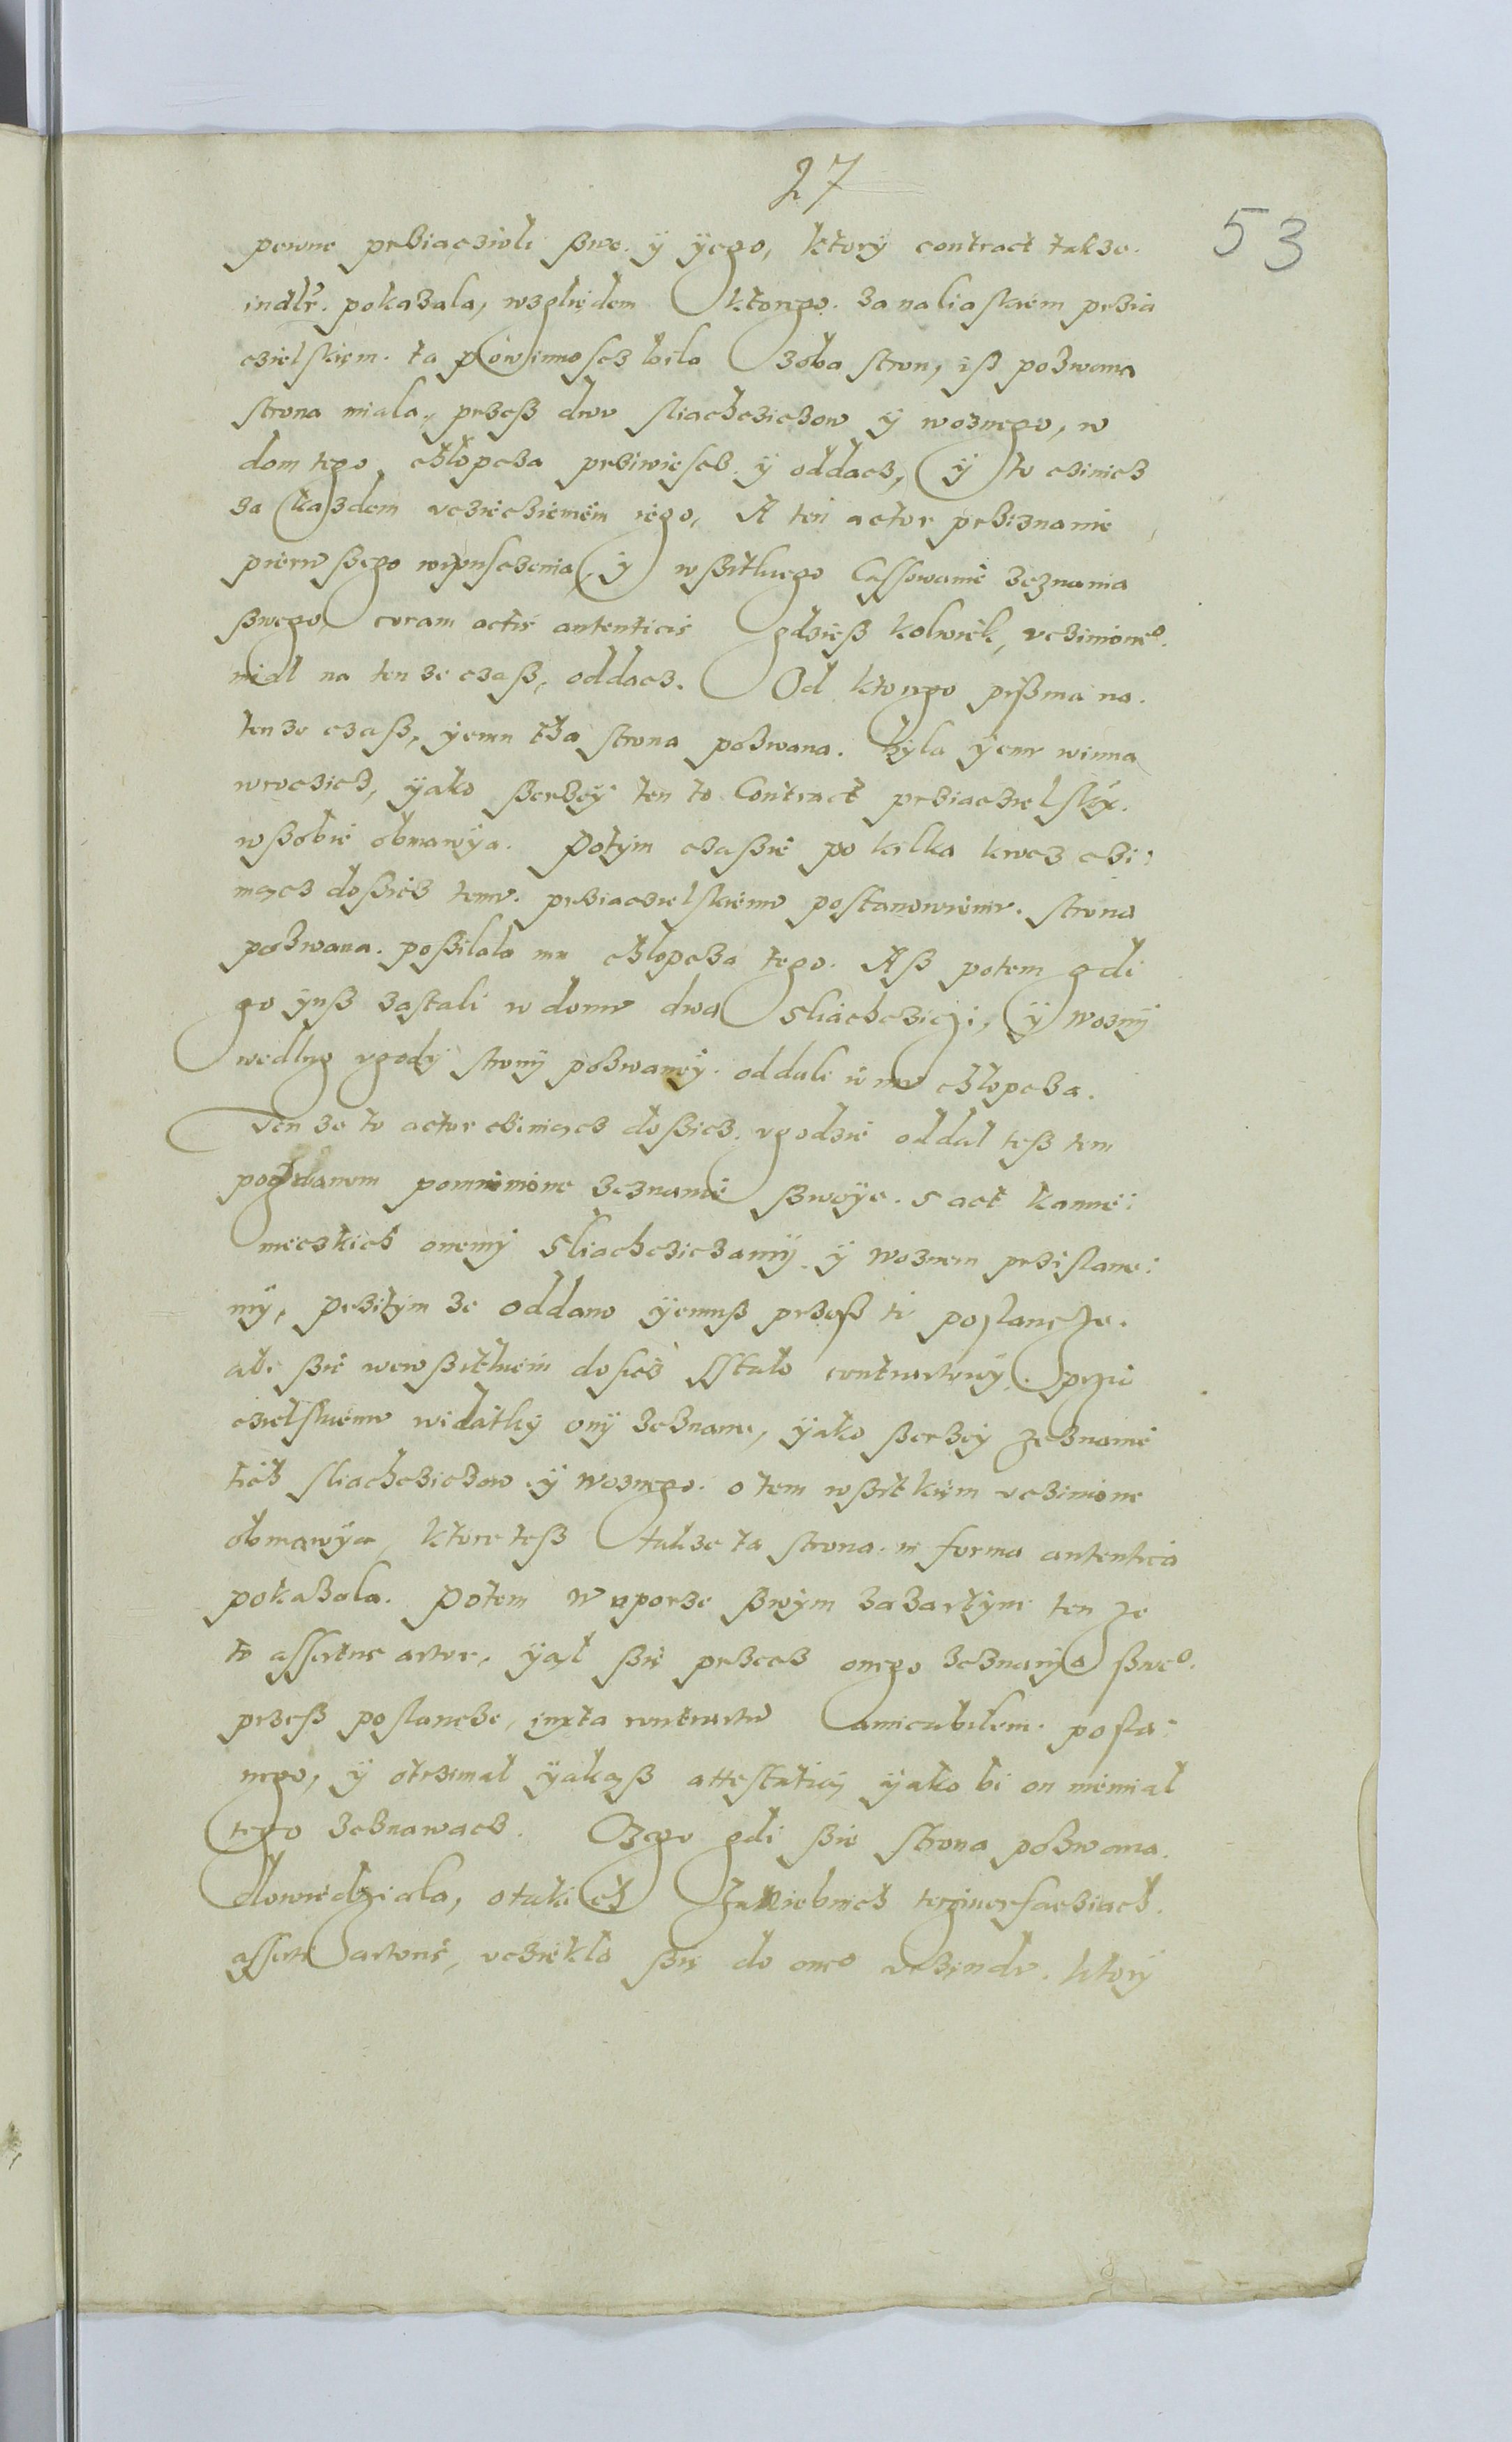 27
53
pewne prziaczioli ßwe. ÿ ÿego, ktorÿ contract takze.
indłr. pokazala, wzgliędem ktorego. zanaliaskiem przia
czielskiem. ta powinnoscz bila zoba stron, iß pozwana
strona miala, przeß dwv sliachcziczow ÿ woznego, w
dom tego chłopcza prziwiescz. ÿ oddacz, ÿ to czinicz
za kazdem vcziecziemem iego, A ten actor prziznanie
pierwßego wipusczenia, ÿ wßitkiego Cassowanie zeznania
ßwego, coram actis autenticis gdzieß kolwiek, vczinioneo.
mial na ten ze czaß, oddacz. Od ktorego pißma na.
ten ze czaß, ÿemu tha strona pozwana. byla ÿemv winna
wroczicz, ÿako ßerzeÿ ten to Contract prziaczielskÿ.
wßobie obmawÿa. Potÿm czaßie po kilka krocz czi:
niącz doßicz temv. prziaczielskiemv postanowieniv. strona
pozwana. poßilala mu chłopcza tego. Aß potem gdi
go ÿuß zastali w domv dwa sliachcziczi, ÿ woznÿ
wedlug vgodÿ stronÿ pozwaneÿ. oddali iemv chłopcza.
Ten ze to actor cziniącz doßicz. vgodzie oddal teß tem
pomienione zeznanie ßwoÿe. s act kamie:
nieczkich onemÿ sliachcziczamÿ. ÿ woznem przislane:
mÿ, przitÿm ze oddano ÿemuß przeß ti poslancze.
abi ßie wewßitkiem dosicz sstalo contractowÿ. przia
czielskiemv widatkÿ onÿ zeznane, ÿako ßerzeÿ zeznanie
tich sliachcziczow ÿ woznego. o tem wßitkiem vczinione
obmawÿa, ktore teß takze ta strona. in forma autentica
pokazala. Potem w uporze ßwÿm zazartÿm ten ze
to assertus actor, ÿąl ßie przecz onego zeznanÿa ßweo.
przeß poslancze, iuxta contractu amicabilem. posla:
nego, ÿ otrzimal ÿakąß attestatią ÿako bi on niemial
tego zeznawacz. Czego gdi ßie strona pozwana.
dowiedziala, o takich terginersacziach.
asserti actoris, vciekla ßię do oneo vrzendv. ktorÿ